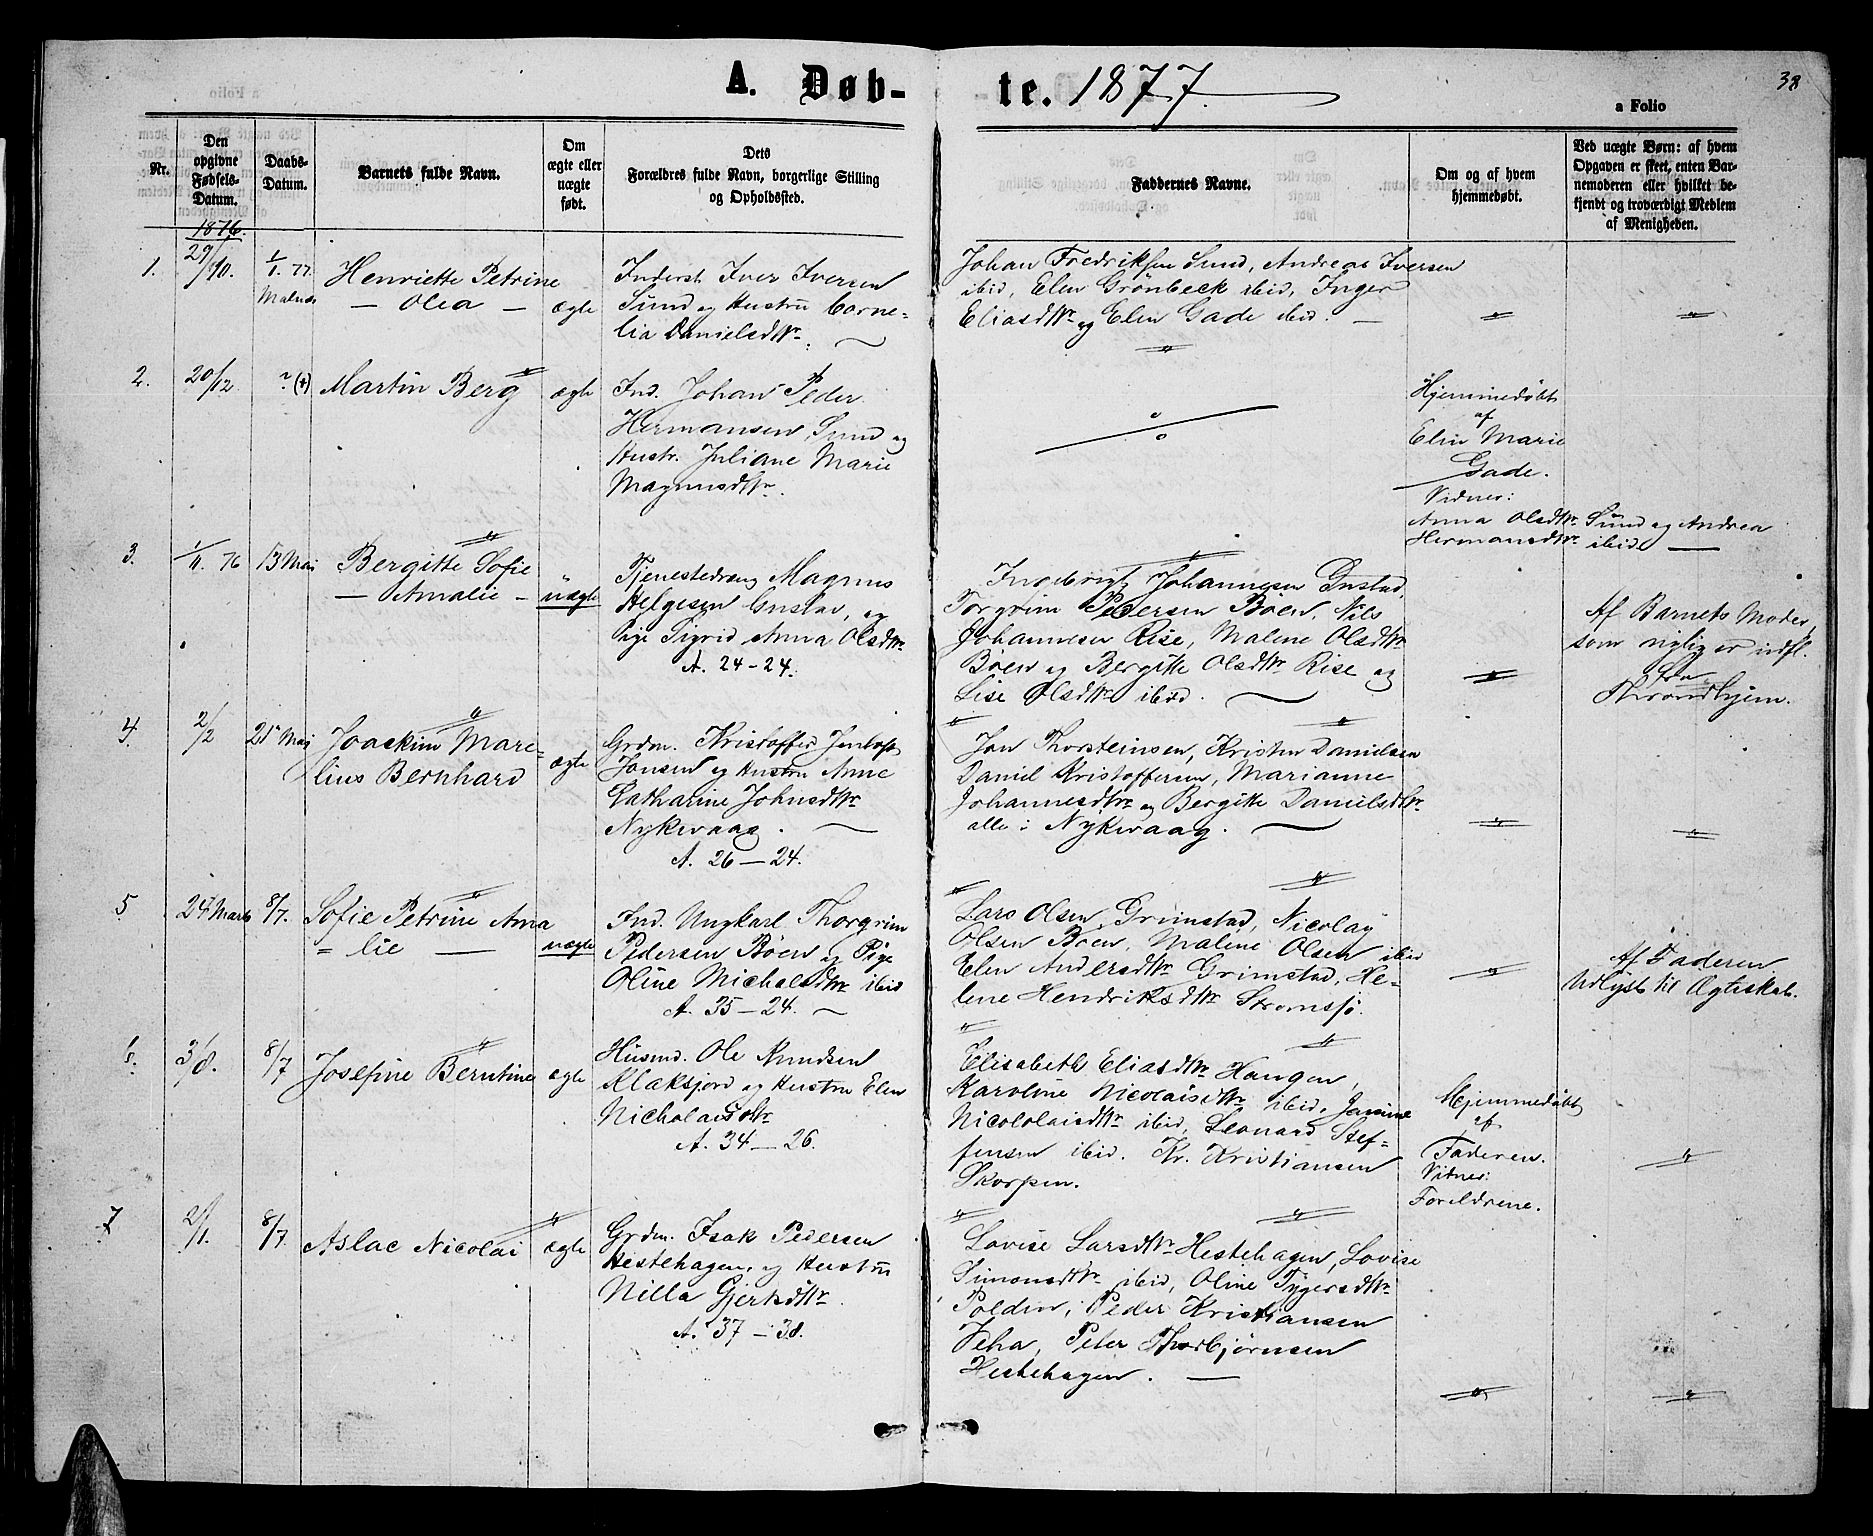 A. Døb-
te. 1877.
38
a Folio
Nr.
Den opgivne Fødsels-Datum.
Daabs-Datum.
Barnets fulde Navn.
Om ægte eller uægte født.
Dets
Forældres fulde Navn, borgerlige Stilling
og Opholdssted.
Faddernes Navne.
Om og af hvem
hjemmedøbt.
Ved uægte Børn: af hvem
Opgaven er skeet, enten Bar-
nemoderen eller hvilket be-
kjendt og troværdigt Medlem
af Menigheden.
1876.
1.
29/10.
1/1. 77.
Malnes
Henriette Petrine
— Olea —
ægte
Inderst Iver Iversen
Sund og Hustru Corne=
lia Danielsdttr.
Johan Fredriksen Sund, Andreas Iversen
ibid, Elen Grønbeck ibid, Inger
Eliasdttr og Elen Gade ibid. —
2.
20/12
? (+)
Martin Berg
ægte
Ind. Johan Peder
Hermansen, Sund og
Hustr. Juliane Marie
Magnusdttr.
Hjemmedøbt
af
Elin Marie
Gade.
Vidner:
Anna Olsdttr Sund og Andrea
Hermansdttr ibid —
3.
1/11. 76
13 Mai
Bergitte Sofie
— Amalie —
uægte
Tjenestedreng Magnus
Helgesen Gustav, og
Pige Sigrid Anna Olsdttr
A. 24-24.
Ingebrigt Johannesen Gustad,
Torgrim Pedersen Bøen, Nils
Johannesen Rise, Malene Olsdttr
Bøen og Bergitte Olsdttr Rise og
Lise Olsdttr ibid. —
Af Barnets Moder,
som rigtig er indfl.
fra
Throndhjem.
4.
2/2
21 Maj
Joackim Mare=
lius Bernhard
ægte
Grdm. Kristoffer Jentoft
Jonsen og Hustru Anne
Catharine Johnsdttr
Nykvaag. —
A. 26 — 24.
Jon Thorsteinsen, Kristen Danielsen
Daniel Kristoffersen, Marianne
Johannesdttr og Bergitte Danielsdttr
alle i Nykvaag. —
5
24 Marts
8/7.
Sofie Petrine Ama
= lie —
uægte
Ind. Ungkarl Thorgrim
Pedersen Bøen og Pige
Oline Michelsdttr ibid
A. 35 — 24. —
Lars Olsen Grimstad, Nicolay
Olsen Bøen, Maline Olsen ibid
Elen Andersdttr Grimstad, He=
lene Hendriksdttr Strømsjø.
Af Faderen
Udlyst til Ægteskab.
6.
3/8.
8/7
Josefine Berntine
ægte
Husmd. Ole Knudsen
Klaksjord og Hustru Elen
Nicholaisdttr
A. 34 — 26.
Elisabeth Eliasdttr Haugen,
Karoline Nicolaisdttr ibid, Janine
Nicololaisdttr ibid, Leonard Stef=
fensen ibid. Kr. Kristiansen
Skorpen.
Hjemmedøbt
af
Faderen.
Vitner:
Foreldrene.
7
2/1.
8/7.
Aslac Nicolai
ægte
Grdm. Isak Pedersen
Hestehagen, og Hustru
Nilla Gjertsdttr.
A. 37 — 38.
Lovise Larsdttr Hestehagen, Lovise
Simonsdttr ibid, Oline Tygersdttr
Polden, Peder Kristiansen
Veha, Peter Thorbjørnsen
Hestehagen. —